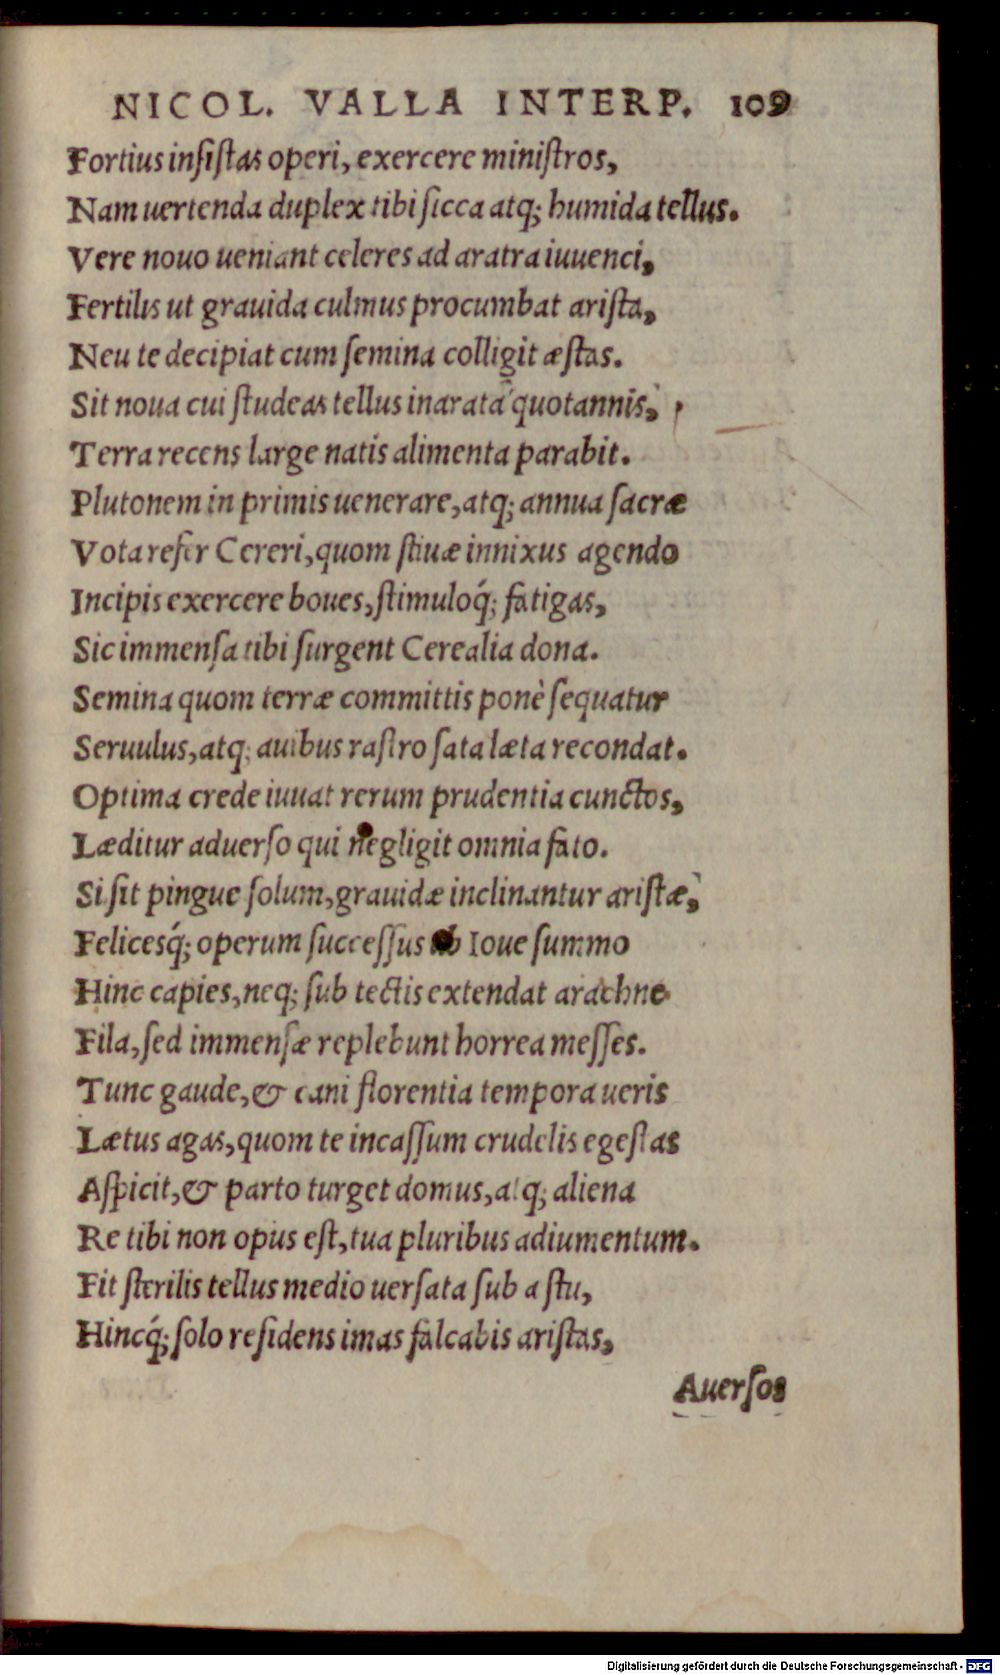 NICOL. VALLA INTERP. 109
Fortius insiſtas operi, exercere miniſtros,
Nam uertenda duplex tibi ſicca atq; humida tellus.
Vere nouo ueniant celeres ad aratra iuuenci,
Fertilis ut grauida culmus procumbat ariſta,
Neu te decipiat cum ſemina colligit æſtas.
Sit noua cui ſtudeas tellus inarata quotannis,
Terra recens large natis alimenta parabit.
Plutonem in primis uenerare, atq; annua ſacræ
Vota refer Cereri, quom ſtiuæ innixus agendo
Incipis exercere boues, ſtimuloq́; fatigas,
Sic immenſa tibi ſurgent Cerealia dona.
Semina quom terræ committis ponè ſequatur
Seruulus, atq; auibus raſtro ſata læta recondat.
Optima crede iuuat rerum prudentia cunctos,
Læditur aduerſo qui negligit omnia fato.
Si ſit pingue ſolum, grauidæ inclinantur ariſtæ,
Felicesq́; operum ſucceſſus ab Ioue ſummo
Hinc capies, neq; ſub tectis extendat arachne
Fila, ſed immenſæ replebunt horrea meſſes.
Tunc gaude, & cani florentia tempora ueris
Lætus agas, quom te incaſſum crudelis egeſtas
Aſpicit, & parto turget domus, atq; aliena
Re tibi non opus eſt, tua pluribus adiumentum.
Fit ſterilis tellus medio uerſata ſub æſtu,
Hincq́; ſolo reſidens imas falcabis ariſtas,
Auerſos
Digitalisierung gefördert durch die Deutsche Forschungsgemeinschaft - DFG